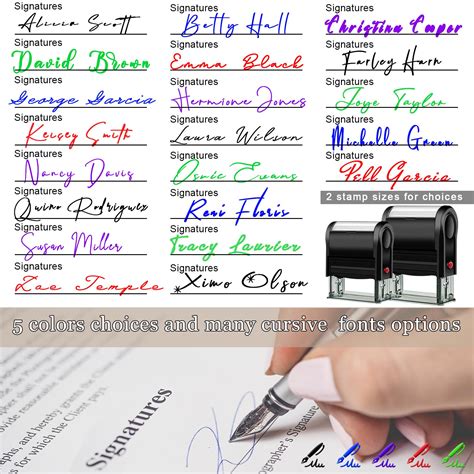 Signatures
Alicia Scott
Signatures
David Brown
Signatures
George Garcia
Signatures
Kelsey Smith
Signatures
Nancy Davis
Signatures
Quino Rodriguez
Signatures
Susan Miller
Signatures
Zae Temple
Signatures
Betty Hall
Signatures
Emma Black
Signatures
Hermione Jones
Signatures
Laura Wilson
Signatures
Osnic Evans
Signatures
René Floris
Signatures
Tracy Laurier
Signatures
Ximo Olson
Signatures
Christina Cooper
Signatures
Farley Harn
Signatures
Joye Taylor
Signatures
Michelle Green
Signatures
Pell Garcia
2 stamp sizes for choices
5 colors choices and many cursive fonts options
and hereby grants
for which the Client pay
Signatures
grapher's Signature